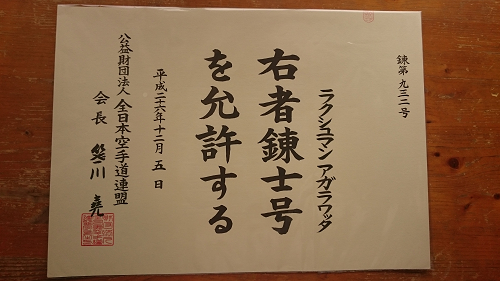 錬第九三二号
ラクシュマン アガラワッタ
右者錬士号
を允許する
平成二十六年十二月五日
公益財団法人 全日本空手道連盟
会長 笹川 堯